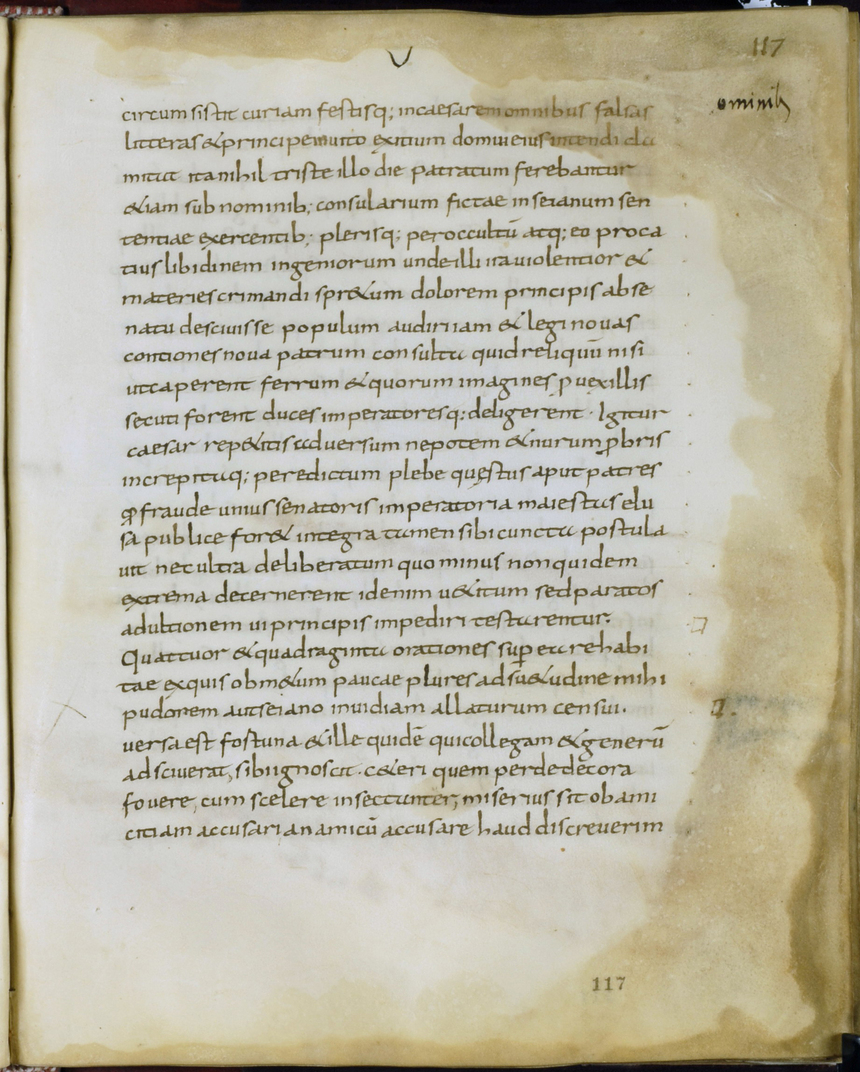 117
ominib;
circumsistit curiam festisq; incaesarem omnibus falsas
litteras & principe inuito exitium domui eius intendi cla
mitat ita nihil triste illo die patratum ferebantur
&iam sub nominib; consularium fictae in seianum sen
tentiae exercentib; plerisq; per occultū atq; eo proca
tius libidinem ingeniorum unde illi ira violentior &
materies crimandi spr&um dolorem principis ab se
natu desciuisse populum audiri iam & legi nouas
contiones noua patrum consulta quid reliquū nisi
ut caperent ferrum & quorum imagines ꝓ uexillis
secuti forent duces imperatoresq; deligerent · Igitur
caesar rep&itis aduersum nepotem & nurum ꝓbris
increpitaq; per edictum plebe quęstus aput patres
qđ fraude unius senatoris imperatoria maiestas elu
sa publice for& integra tamen sibi cuncta postula
uit nec ultra deliberatum quo minus non quidem
extrema decernerent id enim u&itum sed paratos
ad ultionem ui principis impediri testarentur.
Quattuor & quadraginta orationes suꝑ ea re habi
tae ex quis ob m&um paucae plures adsu&udine mihi
pudorem aut seiano inuidiam allaturum censui.
uersa est fostuna & ille quidē qui collegam & generū
adsciuerat, sibi ignoscit · c&eri quem per dedecora
fouere, cum scelere insectanter; miserius sit ob ami
citiam accusari an amicū accusare haud discreuerim
117